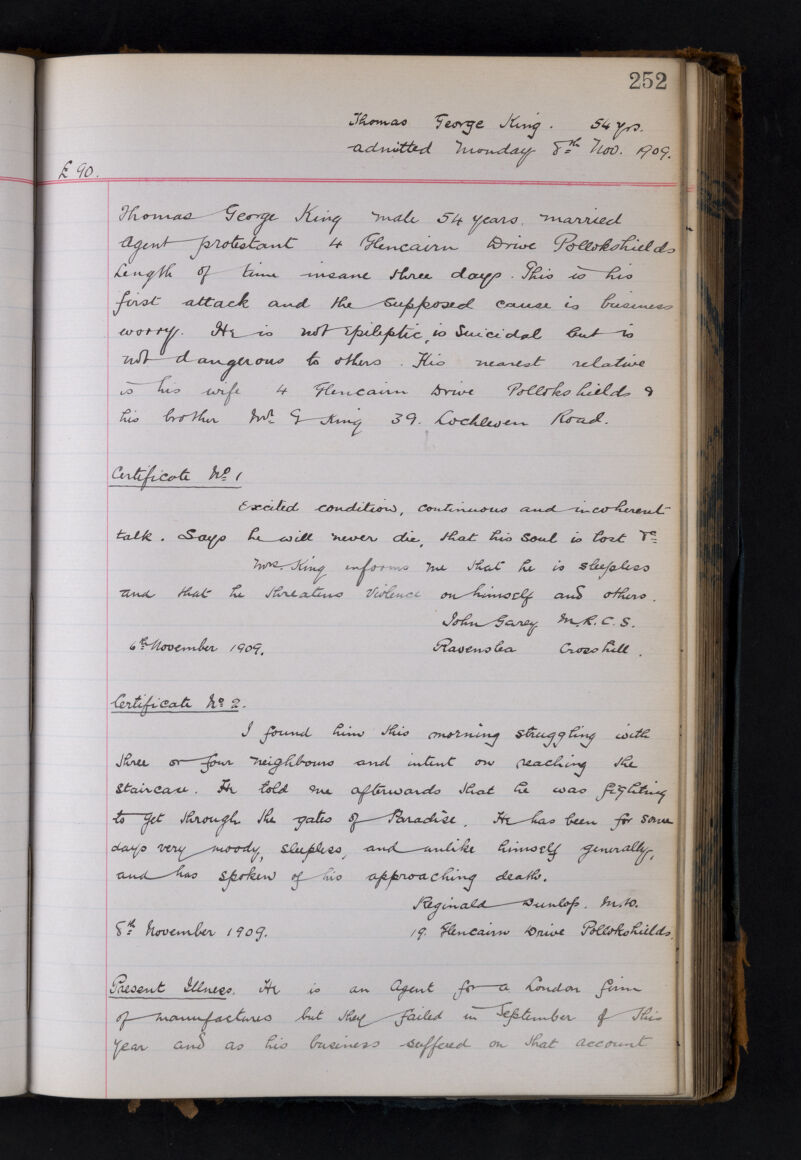 252
Thomas George King. 54 yrs.
admitted Monday 8th Nov. 1909.
£90.
Thomas George King male 54 years. married
Agent protestant 4 Glencairn Drive Pollokshields
Length of time insane three days. This is his
first attack and the supposed cause is business
worry. He is not Epileptic, is Suicidal but is
not dangerous to others. His nearest relative
is his wife 4 Glencairn Drive Pollokshields &
his brother Mr. G King 39. Lochleven Road.
Certificate No. 1
Excited condition, continuous and incoherent
talk. Says he will never die, that his soul is lost &c
Mrs. King informs me that he is sleepless
and that he threatens violence on himself and others.
John Garey M.R.C.S.
6th November 1909. Ravenslea Crosshill.
Certificate No. 2.
I found him this morning struggling with
three or four neighbours and intent on reaching the
staircase. He told me afterwards that he was fighting
to get through the gates of Paradise. He has been for some
days very moody, sleepless, and unlike himself generally,
and has spoken of his approaching death.
Reginald Dunlop. M.D.
8th November 1909. 19. Glencairn Drive Pollokshields.
Present Illness. He is an Agent for a London firm
of manufactures but they failed in September of this
year and as his business suffered on that account